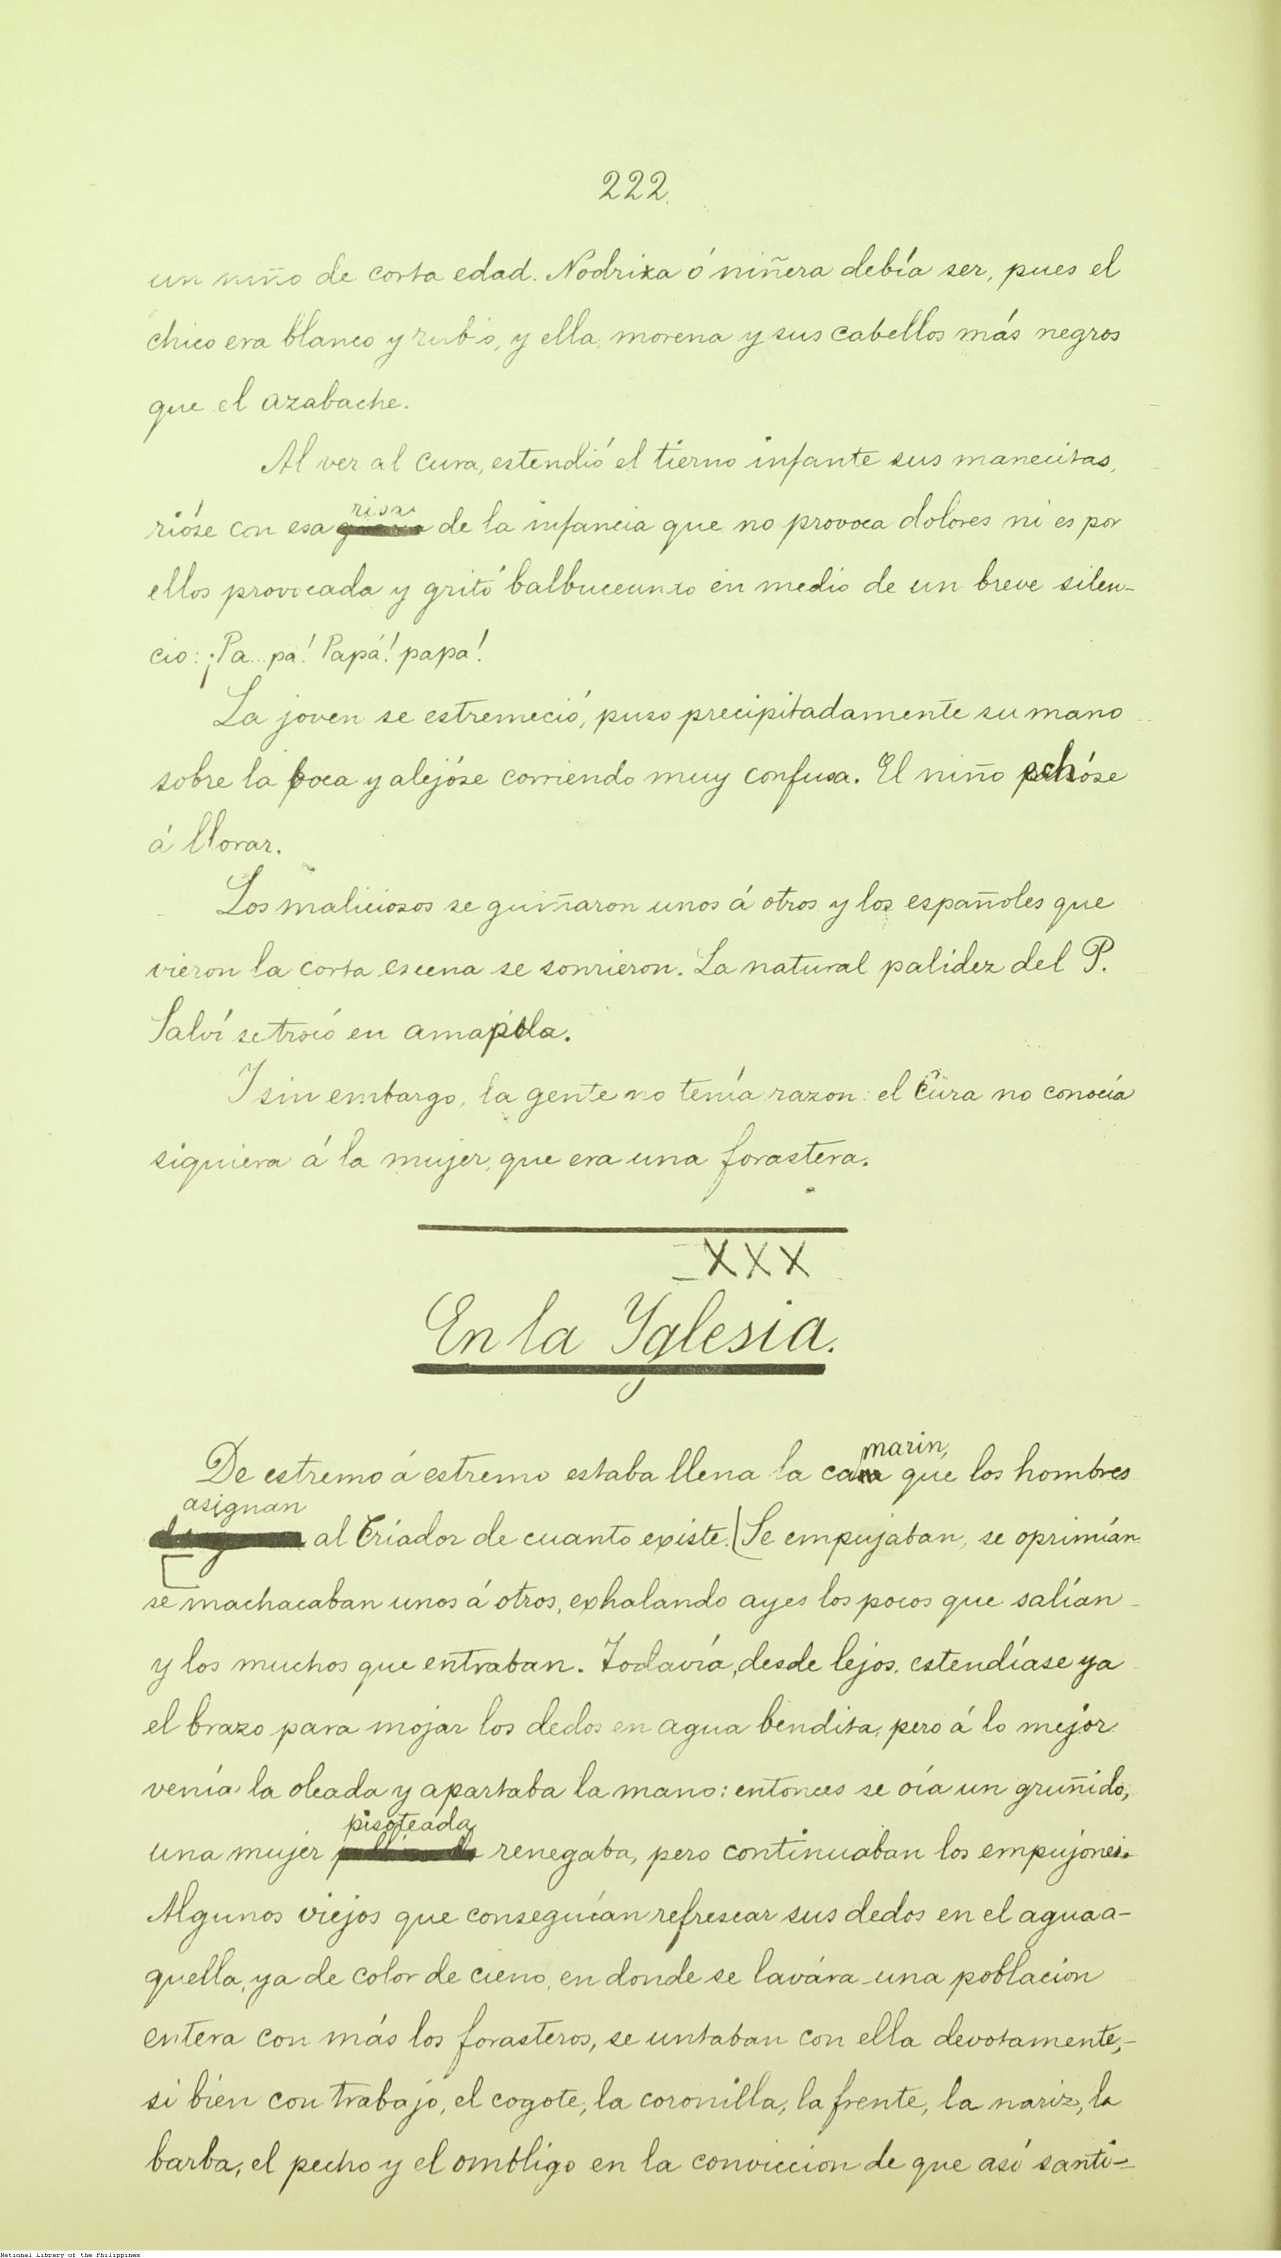 222.
un niño de corta edad. Nodriza ó niñera debía ser, pues el
chico era blanco y rubio, y ella, morena y sus cabellos más negros
que el azabache.
Al ver al cura, estendió el tierno infante sus manecitas,
risa
rióse con esa de la infancia que no provoca dolores ni es por
ellos provocada y gritó balbuceando en medio de un breve silen-
cio: ¡Pa.. pá! Papá! papá!
La joven se estremeció, puso precipitadamente su mano
sobre la boca y alejóse corriendo muy confusa. El niño echóse
á llorar.
Los maliciosos se guiñaron unos á otros y los españoles que
vieron la corta escena se sonrieron. La natural palidez del P.
Salví se trocó en amapola.
Y sin embargo, la gente no tenía razon: el Cura no conocía
siquiera á la mujer, que era una forastera.
XXX
En la Yglesia.
marin,
De estremo á estremo estaba llena la ca que los hombres
asignan
al Criador de cuanto existe. Se empujaban, se oprimían
se machacaban unos á otros, exhalando ayes los pocos que salían
y los muchos que entraban. Todavía, desde lejos, estendíase ya
el brazo para mojar los dedos en agua bendita, pero á lo mejor
venía la oleada y apartaba la mano: entonces se oía un gruñido,
pisoteada
una mujer renegaba, pero continuaban los empujones.
Algunos viejos que conseguían refrescar sus dedos en el agua a-
quella, ya de color de cieno, en donde se lavára una poblacion
entera con más los forasteros, se untaban con ella devotamente,-
si bien con trabajo, el cogote, la coronilla, la frente, la nariz, la
barba, el pecho y el ombligo en la conviccion de que así santi-
National Library of the Philippines